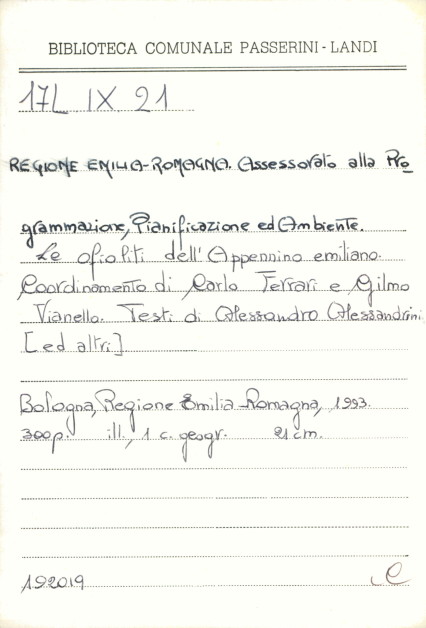 BIBLIOTECA COMUNALE PASSERINI - LANDI
17L IX 21
REGIONE EMILIA-ROMAGNA. Assessorato alla Pro
grammazione, Pianificazione ed Ambiente.
Le ofioliti dell'Appennino emiliano.
Coordinamento di Carlo Ferrari e Gilmo
Vianello. Testi di Alessandro Alessandrini
[ed altri]
Bologna, Regione Emilia-Romagna, 1993.
300p. ill., 1 c. geogr. 21 cm.
192019